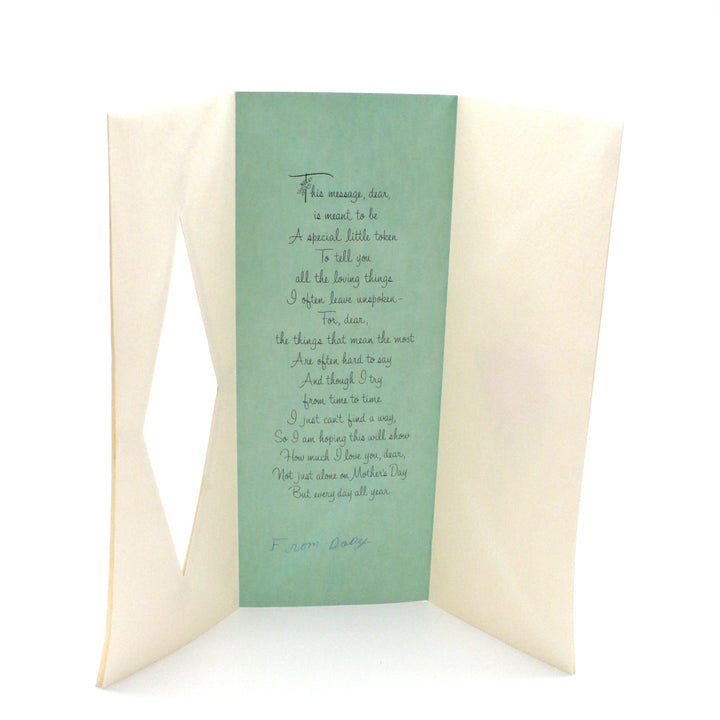 This message, dear,
is meant to be
A special little token
To tell you
all the loving things
I often leave unspoken–
For, dear,
the things that mean the most
Are often hard to say
And though I try
from time to time
I just can't find a way,
So I am hoping this will show
How much I love you, dear,
Not just alone on Mother's Day
But every day all year.
From